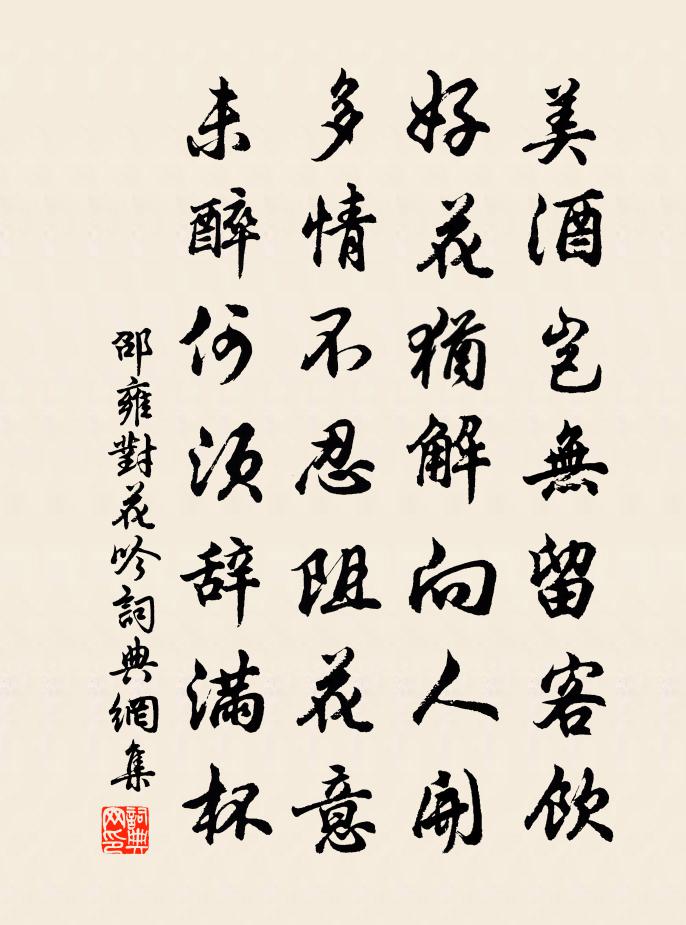 美酒岂無留客飲
好花猶解向人開
多情不忍阻花意
未醉何須辞滿杯
邵雍對花吟詞典網集
詞典
网印